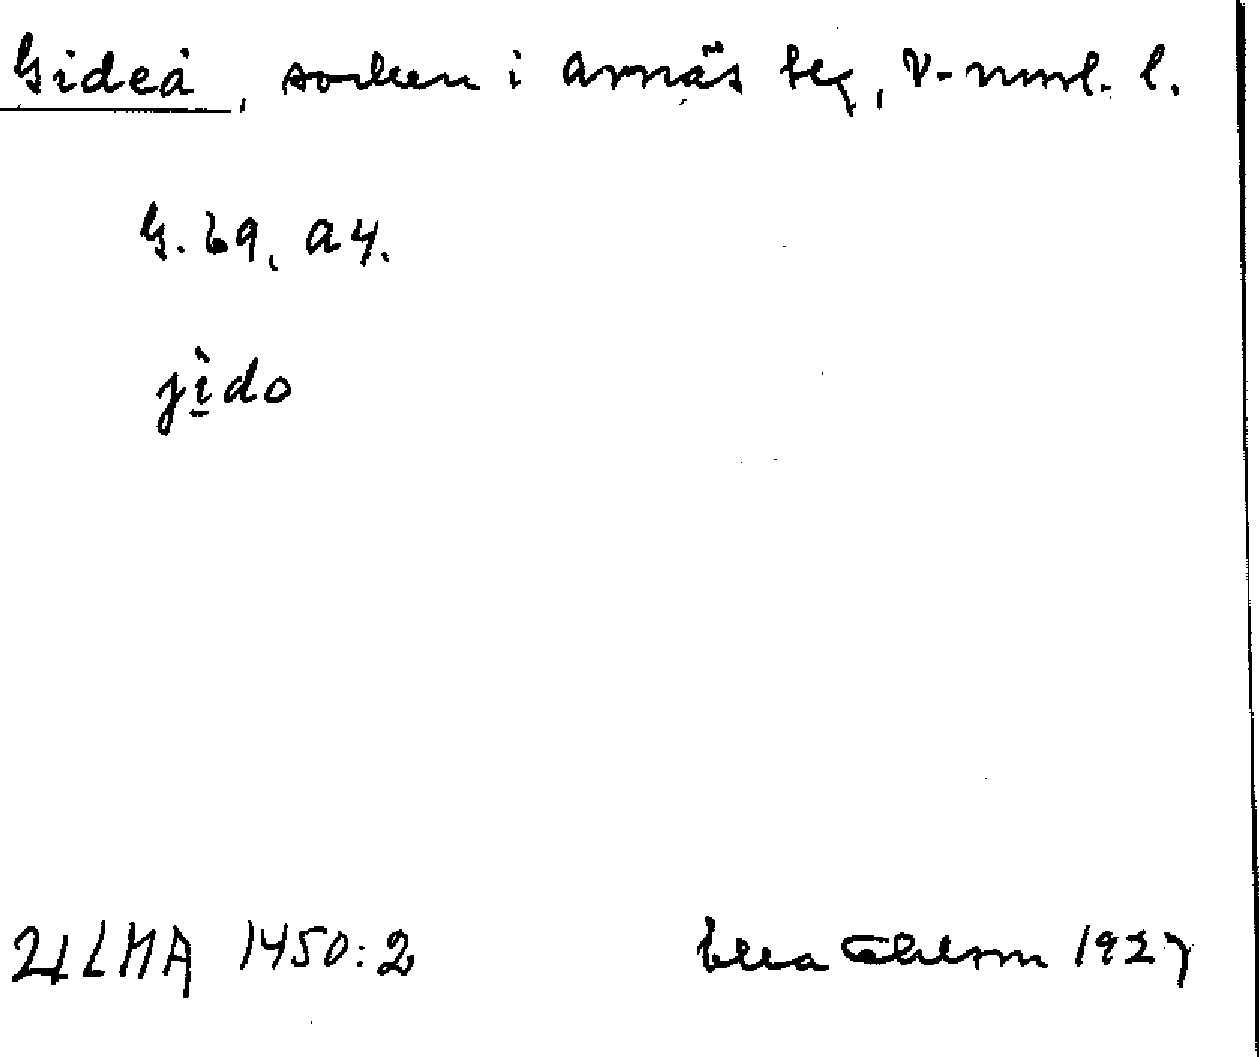 Gideå, socken i Arnäs tg, V-nrrl. l.
G. 69, a4.
jìdo
ULMA 1450:2 Ella Ohlson 1927